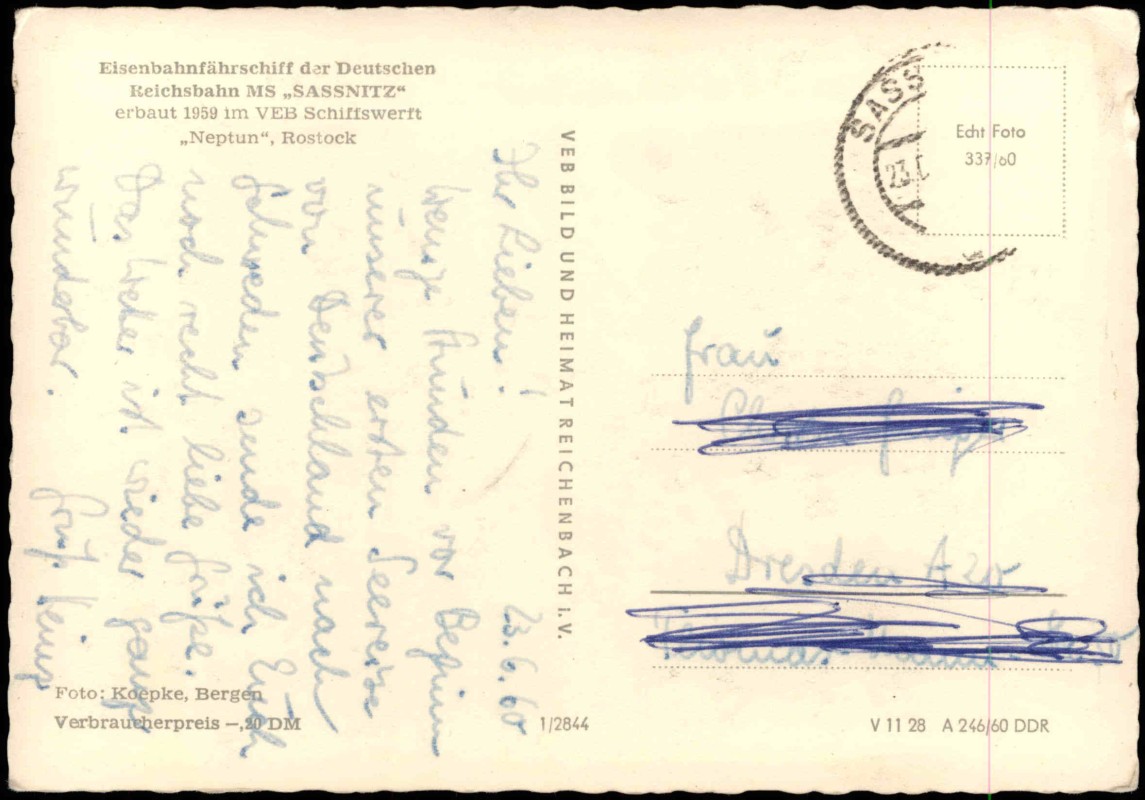 Eisenbahnfährschiff der Deutschen
Reichsbahn MS „SASSNITZ“
erbaut 1959 im VEB Schiffswerft
„Neptun“, Rostock
Ihr Lieben! 23.6.60
Wenige Stunden vor Beginn
unserer ersten Seereise
von Deutschland nach
Schweden sende ich Euch
noch recht liebe Grüße.
Das Wetter ist wieder ganz
wunderbar.
Gruß Heinz
Foto: Koepke, Bergen
Verbraucherpreis –,20 DM
VEB BILD UND HEIMAT REICHENBACH i. V.
1/2844
SASS
23.
Echt Foto
337/60
Frau
Dresden A 20
V 11 28 A 246/60 DDR